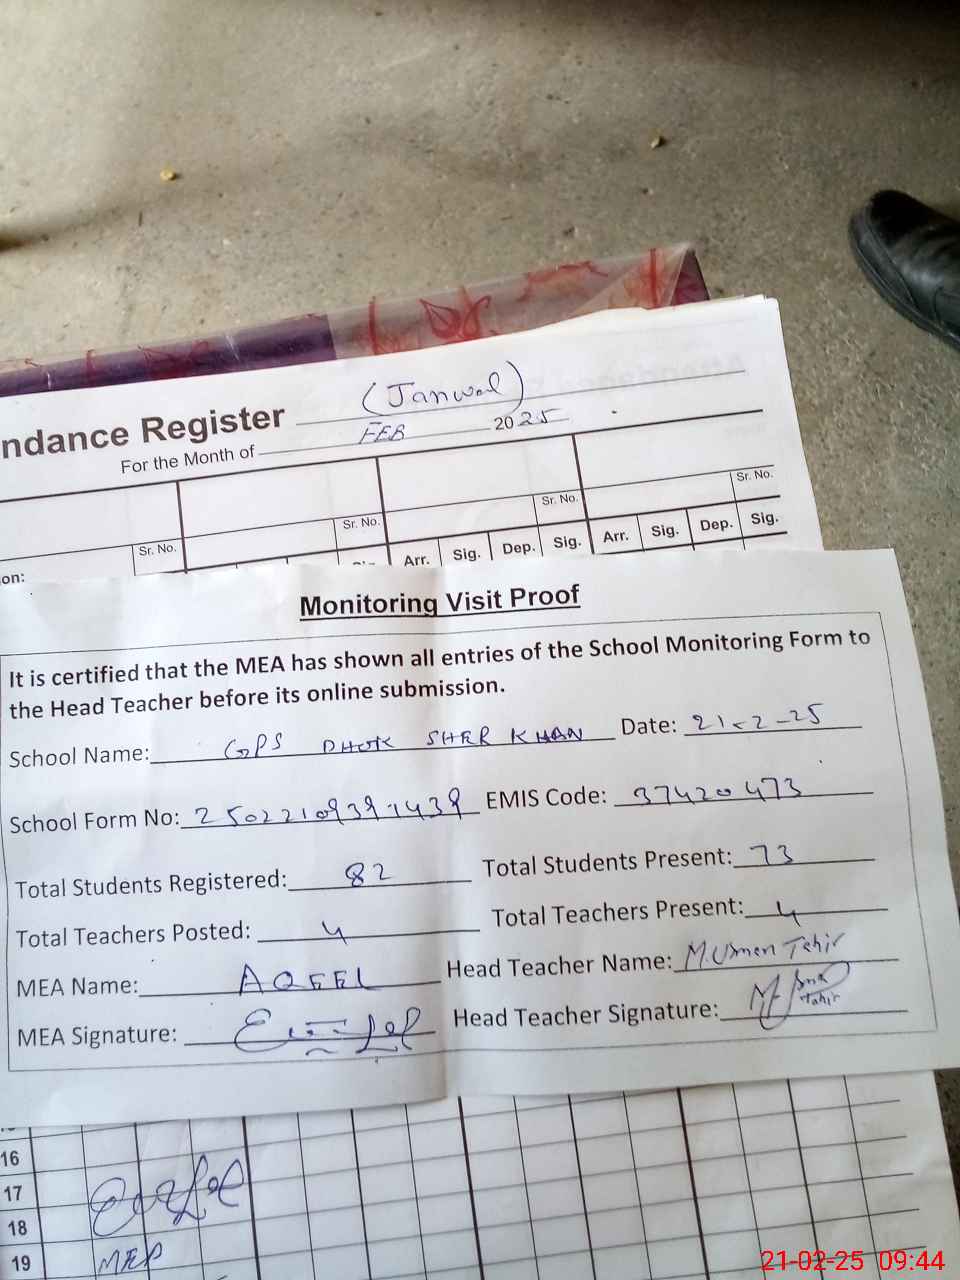 (Janwal)
ndance Register
For the Month of FEB 2025
Sr. No. Sr. No. Sr. No. Sr. No.
on: Arr. Sig. Dep. Sig. Arr. Sig. Dep. Sig.
Monitoring Visit Proof
It is certified that the MEA has shown all entries of the School Monitoring Form to
the Head Teacher before its online submission.
School Name: GPS DHOK SHER KHAN Date: 21-2-25
School Form No: EMIS Code: 37420473
Total Students Registered: 82 Total Students Present: 73
Total Teachers Posted: 4 Total Teachers Present: 4
MEA Name: AQEEL Head Teacher Name: M. Usman Tahir
MEA Signature: Head Teacher Signature:
16
17
18
19
21-02-25 09:44